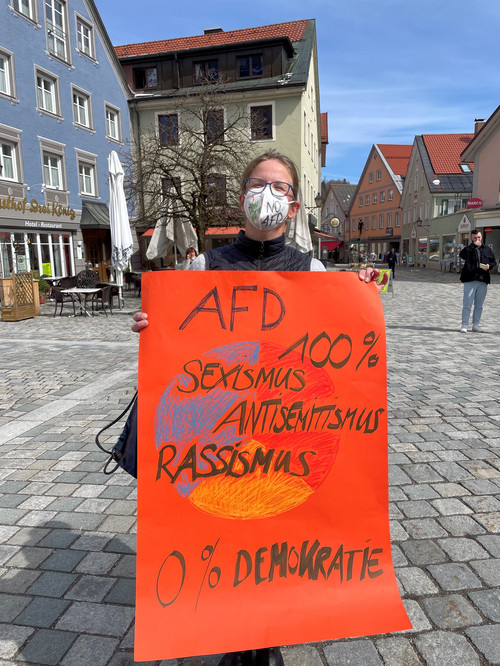 Gasthof Drei König
Hotel · Restaurant
NO
AFD
AFD
100%
SEXISMUS
ANTISEMITISMUS
RASSISMUS
0% DEMOKRATIE